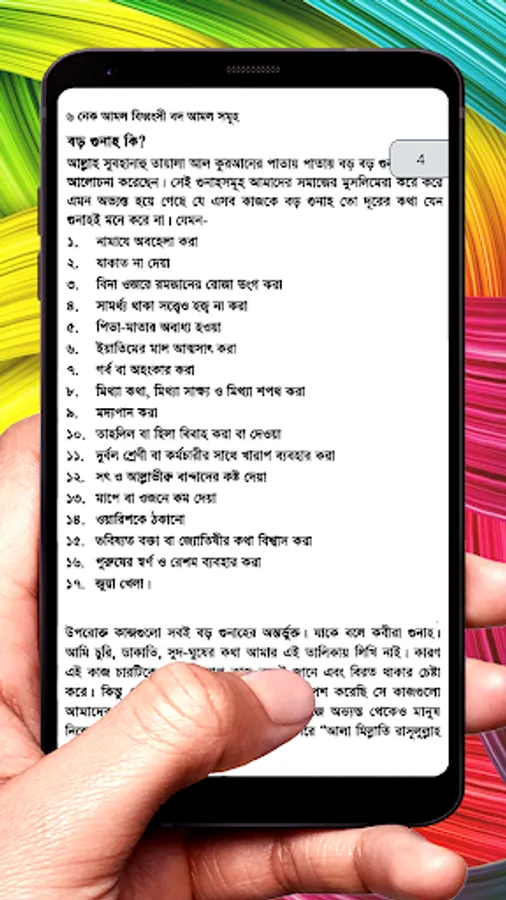 ৬ নেক আমল বিধ্বংসী বদ আমল সমূহ
বড় গুনাহ কি?
4
আল্লাহ সুবহানাহু তায়ালা আল কুরআনের পাতায় পাতায় বড় বড়
আলোচনা করেছেন। সেই গুনাহসমূহ আমাদের সমাজের মুসলিমেরা করে করে
এমন অভ্যস্ত হয়ে গেছে যে এসব কাজকে বড় গুনাহ তো দূরের কথা যেন
গুনাহই মনে করে না। যেমন-
১. নামাযে অবহেলা করা
২. যাকাত না দেয়া
৩. বিনা ওজরে রমজানের রোজা ভংগ করা
৪. সামর্থ্য থাকা সত্ত্বেও হজ্ব না করা
৫. পিতা-মাতার অবাধ্য হওয়া
৬. ইয়াতিমের মাল আত্মসাৎ করা
৭. গর্ব বা অহংকার করা
৮. মিথ্যা কথা, মিথ্যা সাক্ষ্য ও মিথ্যা শপথ করা
৯. মদ্যপান করা
১০. তাহলিল বা হিলা বিবাহ করা বা দেওয়া
১১. দুর্বল শ্রেণী বা কর্মচারীর সাথে খারাপ ব্যবহার করা
১২. সৎ ও আল্লাভীরু বান্দাদের কষ্ট দেয়া
১৩. মাপে বা ওজনে কম দেয়া
১৪. ওয়ারিশকে ঠকানো
১৫. ভবিষ্যত বক্তা বা জ্যোতিষীর কথা বিশ্বাস করা
১৬. পুরুষের স্বর্ণ ও রেশম ব্যবহার করা
১৭. জুয়া খেলা।
উপরোক্ত কাজগুলো সবই বড় গুনাহের অন্তর্ভুক্ত। যাকে বলে কবীরা গুনাহ।
আমি চুরি, ডাকাতি, সুদ-ঘুষের কথা আমার এই তালিকায় লিখি নাই। কারণ
এই কাজ চারটিকে জানে এবং বিরত থাকার চেষ্টা
করে। কিন্তু করেছি সে কাজগুলো
আমাদের অভ্যস্ত থেকেও মানুষ
"আলা মিল্লাতি রাসূলুল্লাহ